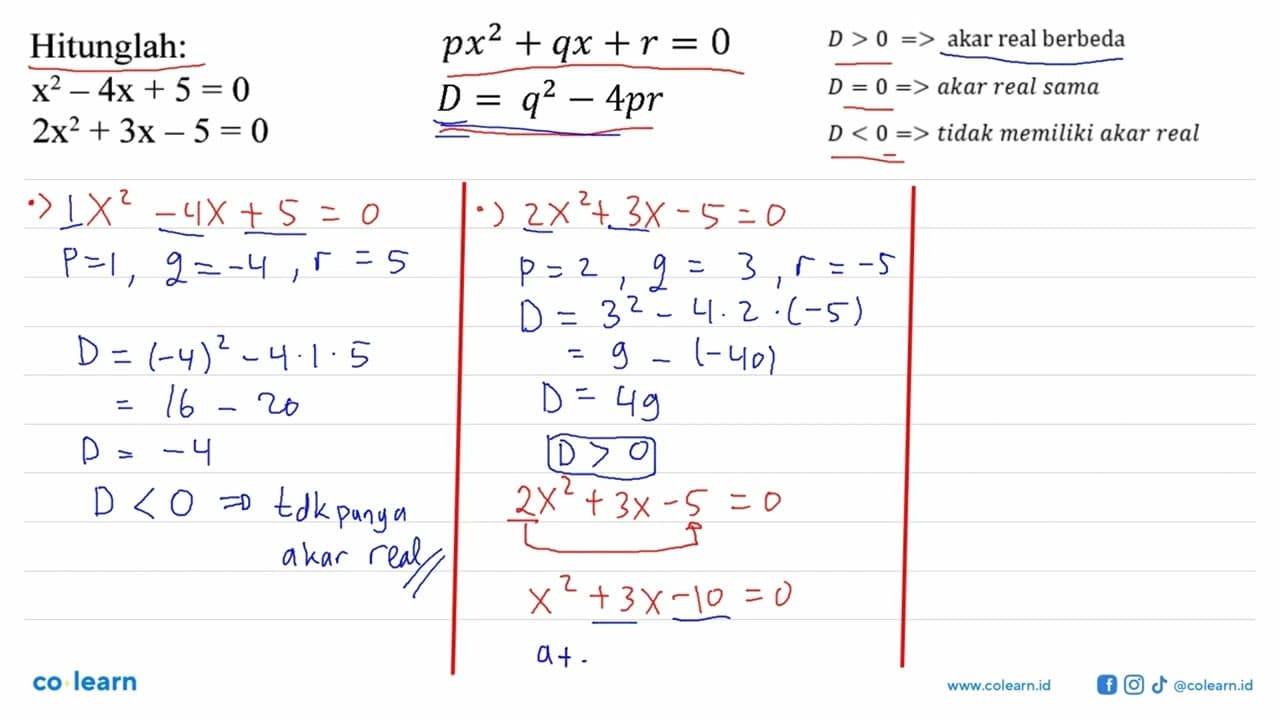 Hitunglah:
x² – 4x + 5 = 0
2x² + 3x – 5 = 0
px² + qx + r = 0
D = q² − 4pr
D > 0 => akar real berbeda
D = 0 => akar real sama
D < 0 => tidak memiliki akar real
•) 1x² − 4x + 5 = 0
P=1, q = −4, r = 5
D = (−4)² − 4·1·5
= 16 − 20
D = −4
D < 0 ⇒ tdk punya
akar real //
•) 2x² + 3x − 5 = 0
p = 2, q = 3, r = −5
D = 3² − 4·2·(−5)
= 9 − (−40)
D = 49
D > 0
2x² + 3x − 5 = 0
x² + 3x − 10 = 0
a + .
co·learn
www.colearn.id
@colearn.id